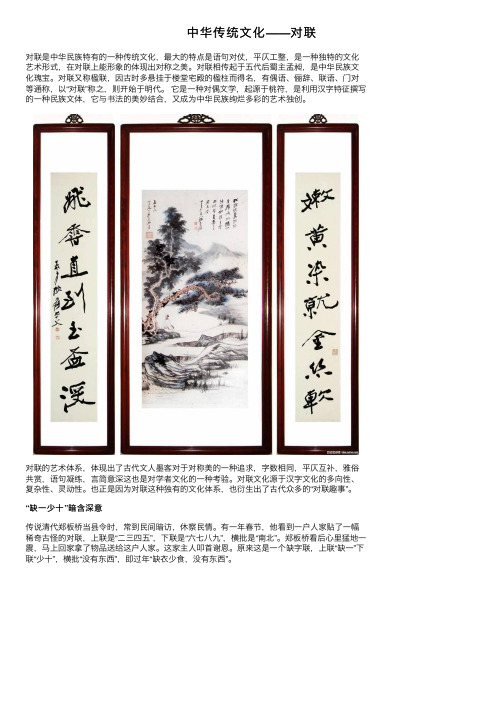 中华传统文化——对联
对联是中华民族特有的一种传统文化，最大的特点是语句对仗，平仄工整，是一种独特的文化
艺术形式，在对联上能形象的体现出对称之美。对联相传起于五代后蜀主孟昶，是中华民族文
化瑰宝。对联又称楹联，因古时多悬挂于楼堂宅殿的楹柱而得名，有偶语、俪辞、联语、门对
等通称，以“对联”称之，则开始于明代。 它是一种对偶文学，起源于桃符，是利用汉字特征撰写
的一种民族文体，它与书法的美妙结合，又成为中华民族绚烂多彩的艺术独创。
嫩黄染就金丝軟
直到玉盃
对联的艺术体系，体现出了古代文人墨客对于对称美的一种追求，字数相同，平仄互补，雅俗
共赏，语句凝练，言简意深这也是对学者文化的一种考验。对联文化源于汉字文化的多向性、
复杂性、灵动性。也正是因为对联这种独有的文化体系，也衍生出了古代众多的“对联趣事”。
“缺一少十 ”暗含深意
传说清代郑板桥当县令时，常到民间暗访，休察民情。有一年春节，他看到一户人家贴了一幅
稀奇古怪的对联，上联是“二三四五”，下联是“六七八九”，横批是“南北”。郑板桥看后心里猛地一
震，马上回家拿了物品送给这户人家。这家主人叩首谢恩。原来这是一个缺字联，上联“缺一”下
联“少十”，横批“没有东西”，即过年“缺衣少食，没有东西”。